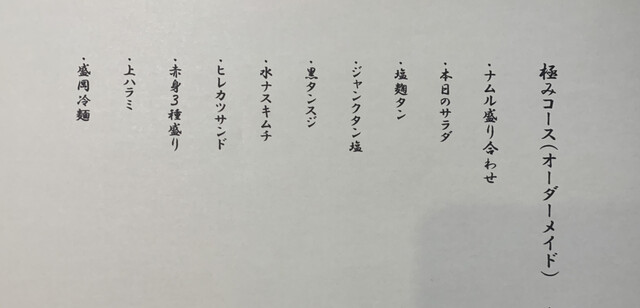 極みコース(オーダーメイド)
・ナムル盛り合わせ
・本日のサラダ
・塩麹タン
・ジャンクタン塩
・黒タンスジ
・水ナスキムチ
・ヒレカツサンド
・赤身3種盛り
・上ハラミ
・盛岡冷麺